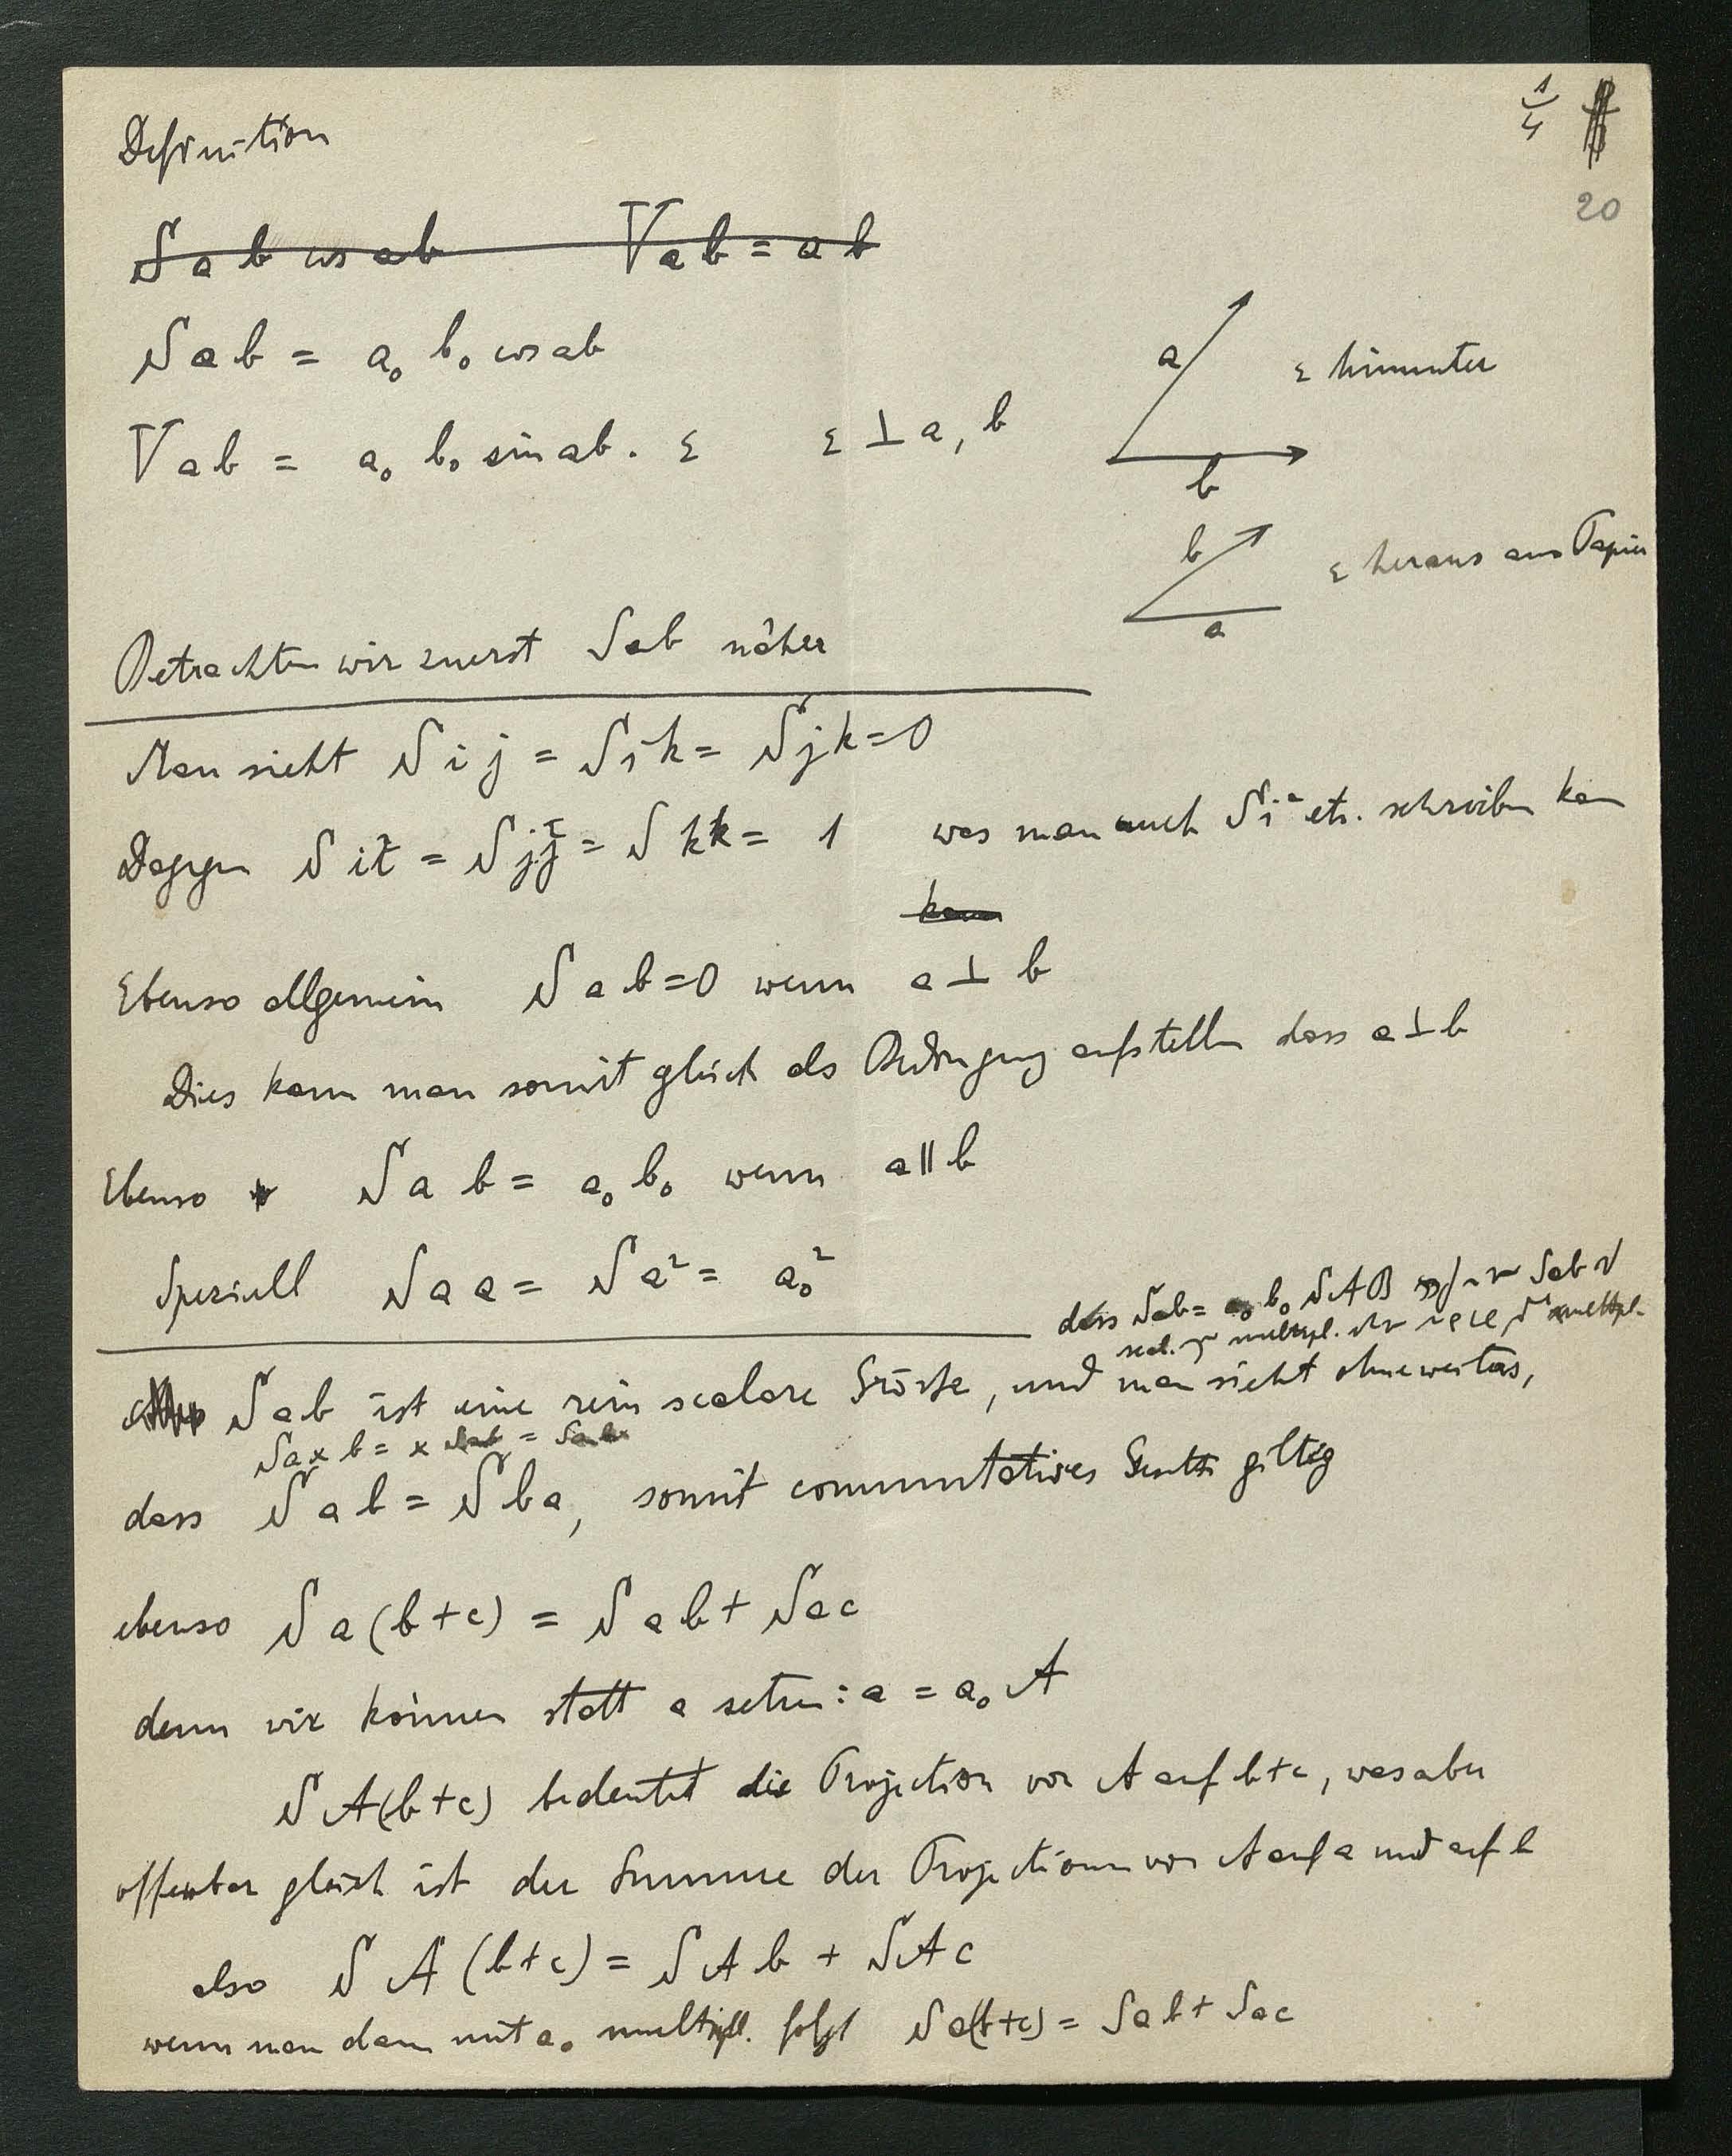 1/4
20
Definition
S a b cos ab V a b = a b
S a b = a₀ b₀ cos ab
V a b = a₀ b₀ sin ab . ε ε ⊥ a, b
a
b
ε hinunter
b
a
ε heraus aus Papier
Betrachten wir zuerst Sab näher
Man sieht S i j = S i k = S j k = 0
Dagegen S i i = S j j = S k k = 1 was man auch S i² etc. schreiben kann
kann
Ebenso allgemein S a b = 0 wenn a ⊥ b
Dies kann man somit gleich als Bedingung aufstellen dass a ⊥ b
Ebenso S a b = a₀ b₀ wenn a ∥ b
Speziell S a a = S a² = a₀²
dass Sab = a₀ b₀ SAB Sab
scal. multipl. multipl.
S a b ist eine rein scalare Grösse, und man sieht ohneweiters,
S a x b = x Sab = Sabx
dass S a b = S b a, somit commutatives Gesetz giltig
ebenso S a (b + c) = S a b + S a c
denn wir können statt a setzen: a = a₀ A
S A (b + c) bedeutet die Projection von A auf b + c, was aber
offenbar gleich ist der Summe der Projectionen von A auf a und auf b
also S A (b + c) = S A b + S A c
wenn man dann mit a₀ multipl. folgt S a (b + c) = S a b + S a c